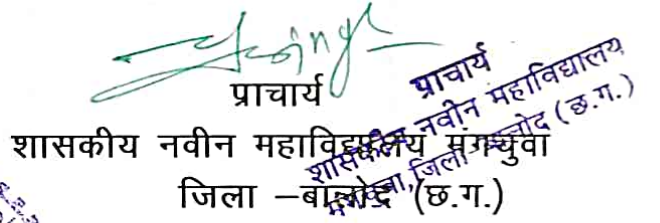 प्राचार्य
शासकीय नवीन महाविद्यालय मंगचुवा
जिला –बालोद (छ.ग.)
प्राचार्य
शासकीय नवीन महाविद्यालय
जिला बालोद (छ.ग.)